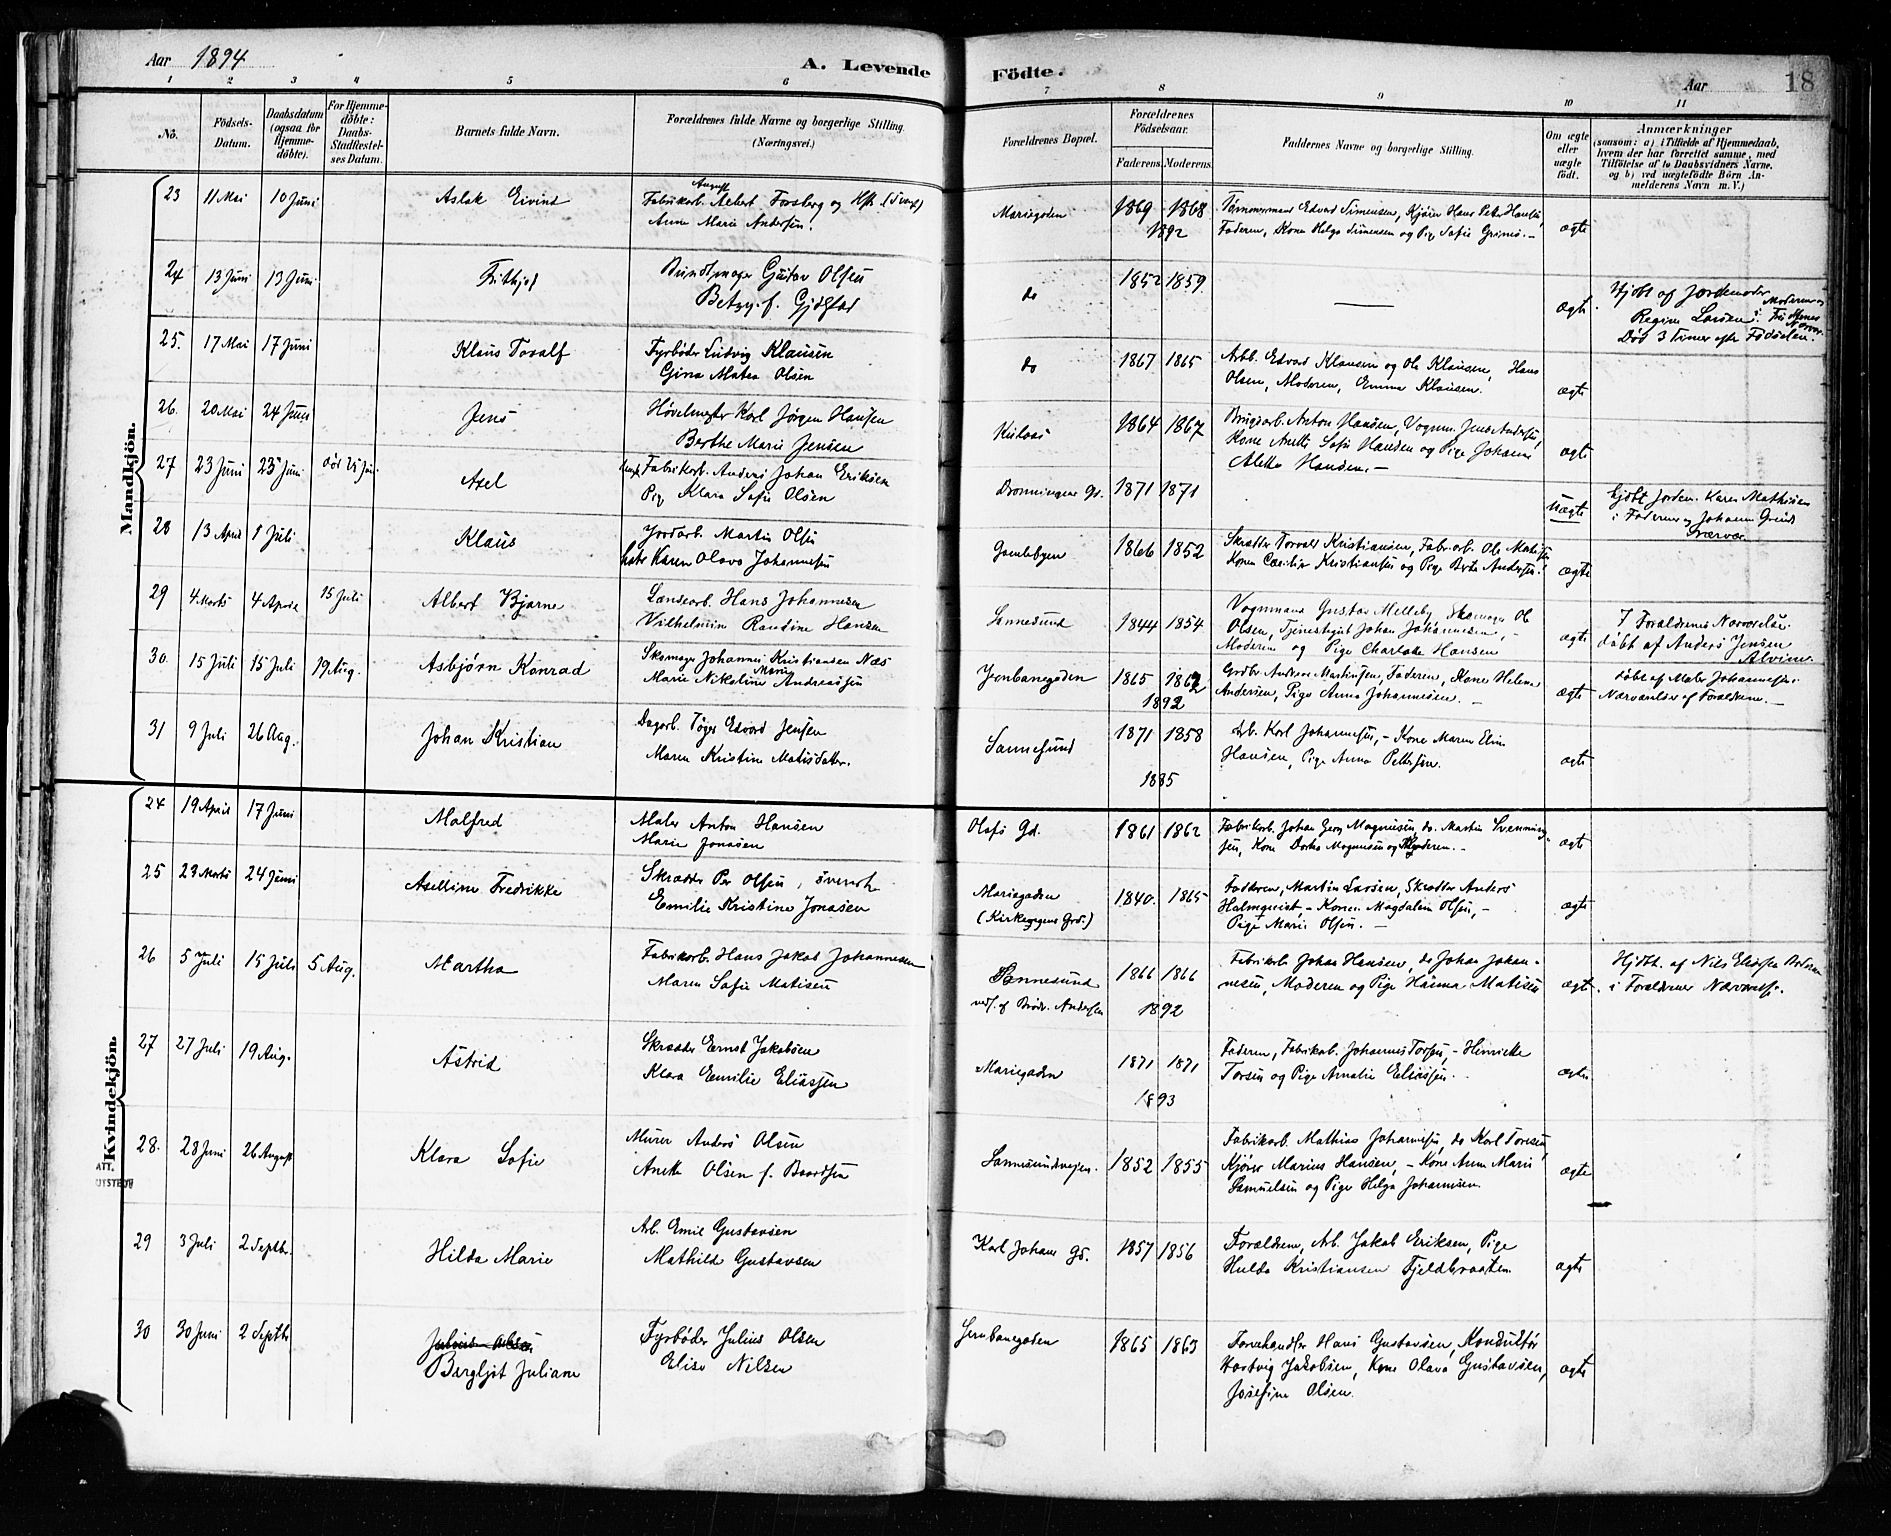 Aar 1894
A. Levende
Födte.
Aar
18
1 2 3 4 5 6 7 8 9 10 11
No.
Födsels-
Datum.
Daabsdatum
(ogsaa for
Hjemme-
döbte).
For Hjemme-
döbte:
Daabs-
Stadfæstel-
ses Datum.
Barnets fulde Navn.
Forældrenes fulde Navne og borgerlige Stilling.
(Næringsvei.)
Forældrenes Bopæl.
Forældrenes
Födselsaar.
Faderens. Moderens.
Faddernes Navne og borgerlige Stilling.
Om ægte
eller
uægte
födt.
Anmærkninger
(saasom: a) i Tilfælde af Hjemmedaab,
hvem der har forrettet samme, med
Tilföielse af to Daabsvidners Navne.
og b) ved uægtefödte Börn An-
melderens Navn m. V.)
Mandkjön.
23 11 Mai 10 Juni Aslak Eivind
August
Fabrikarb. Albert Forsberg og Hst.
Anne Marie Andersen.
Mariegaden 1869 1868
1892
Edvard Simensen, Kjører Hans Peter Hansen,
Faderen, Kone Helga Simensen og Pige Sofie Grimsö. -
ægte
24 13 Juni 13 Juni Frithjof
Bundtmager Gustav Olsen
Betzy f. Gjölstad
do 1852 1859 — ægte
Hjdbt af Jordemoder
Regine Larsen
Død 3 Timer efter Födselen.
25. 17 Mai 17 Juni Klaus Toralf
Fyrböder Ludvig Klausen
Gina Matea Olsen
do 1867 1865
Arbb. Edvard Klausen og Ole Klausen, Hans
Olsen, Moderen, Emma Klausen.
ægte
26. 20 Mai 24 Juni Jens
Høvelmester Karl Jørgen Hansen
Berthe Marie Jensen
1864 1867
Brugsarb. Anton Hansen, Vognm. Jens Andersen,
Kone Anette Sofie Hansen og Pige Johanne
Aletta Hansen. -
ægte
27 23 Juni 25 Juni Axel
Fabrikarb. Anders Johan Eriksen
Pige Klara Sofie Olsen
Dronningens Gd. 1871 1871
uægte
Hjdbt Jordem. Karen Mathisen
i Faderens og Johanne
Nærvær
28 13 April 1 Juli Klaus
Jordarb. Martin Olsen
Karen Olava Johannesen
Gamlebyen 1866 1852
Skrædder Torvald Kristiansen, Fabr.arb. Ole Mathisen
Konen Cæcilie Kristiansen og Pige Berte Andersen.
ægte
29 4 Marts 4 April 15 Juli Albert Bjarne
Landarb. Hans Johannesen
Vilhelmine Randine Hansen
Sannesund 1844 1854
Vognmand Gustav Melleby, Skomager Ole
Olsen, Tjenestegut Johan Johannesen, -
Moderen og Pige Charlotte Hansen
ægte
I Forældrenes Nærværelse
döbt af Anders Jensen
Alvim.
30. 15 Juli 15 Juli 19 Aug. Asbjørn Konrad
Skomager Johannes Kristiansen Næs
Marie Nikoline Marie Andreassen
Jernbanegaden 1865 1862
1892
Andreas Martinsen, Faderen, Kone Helene
Andersen, Pige Anna Johannesen. -
ægte
döbt af Maler Johannesen i
Nærværelse af Forældrene. -
31 9 Juli 26 Aug. Johan Kristian
Dagarb. Töger Edvard Jensen
Maren Kristine Matisdatter.
Sannesund 1871 1858
1885
Arb. Karl Johannesen, - Kone Maren Eline
Hansen, Pige Anna Pettersen.
ægte
Kvindekjön.
24 19 April 17 Juni Malfred
Maler Anton Hansen
Marie Jonasen
Olafs Gd. 1861 1862
Fabrikarb. Johan Georg Magnusen, do. Martin Svenning-
sen, Kone Dorthea Magnusen og Moderen. -
ægte
25 23 Marts 24 Juni Aselline Fredrikke
Skrædder Per Olsen, svensk
Emilie Kristine Jonasen
Mariegaden
(Kirkegagens Grd.)
1840. 1865
Faderen, Martin Larsen, Skrædder Anders
Halmqvist, - Konen Magdalene Olsen, -
Pige Marie Olsen. -
ægte
26 5 Juli 15 Juli 5 Aug. Martha
Fabrikarb. Hans Jakob Johannesen
Maren Sofie Matisen
Sannesund
1866 1866
1892
Fabrikarb. Johan Hansen, do Johan Johan-
nesen, Moderen og Pige Hanna Matisen
ægte
Hjdbt. af Nils Eliassen
i Forældrenes Nærværelse.
27 27 Juli 19 Aug. Astrid
Skrædder Ernst Jakobsen
Klara Emilie Eliassen
Mariegaden 1871 1871
1893
Faderen, Fabrikarb. Johannes Torsen, - Henriette
Torsen og Pige Amalie Eliassen.
ægte
28. 28 Juni 26 August Klara Sofie
Murer Anders Olsen
Anette Olsen f. Baardsen
Sannesundveien. 1852 1855
Fabrikarb. Mathias Johannesen, do Karl Toresen,
Kjører Marius Hansen, - Kone Anne Marie
Samuelsen og Pige Helga Johannesen.
ægte
29 3 Juli 2 Septbr. Hilda Marie
Arb. Emil Gustavsen
Mathilde Gustavsen
Karl Johans Gd. 1857 1856
Forældrene, Arb. Jakob Eriksen, Pige
Hulda Kristiansen Fjeldbraaten
ægte
30 30 Juni 2 Septbr
Bergljot Juliane
Fyrböder Julius Olsen
Elise Nilsen
Jernbanegaden 1865 1863
Farvehandler Hans Gustavsen, Konduktør
Hartvig Jakobsen, Kone Olava Gustavsen,
Josefine Olsen.
ægte